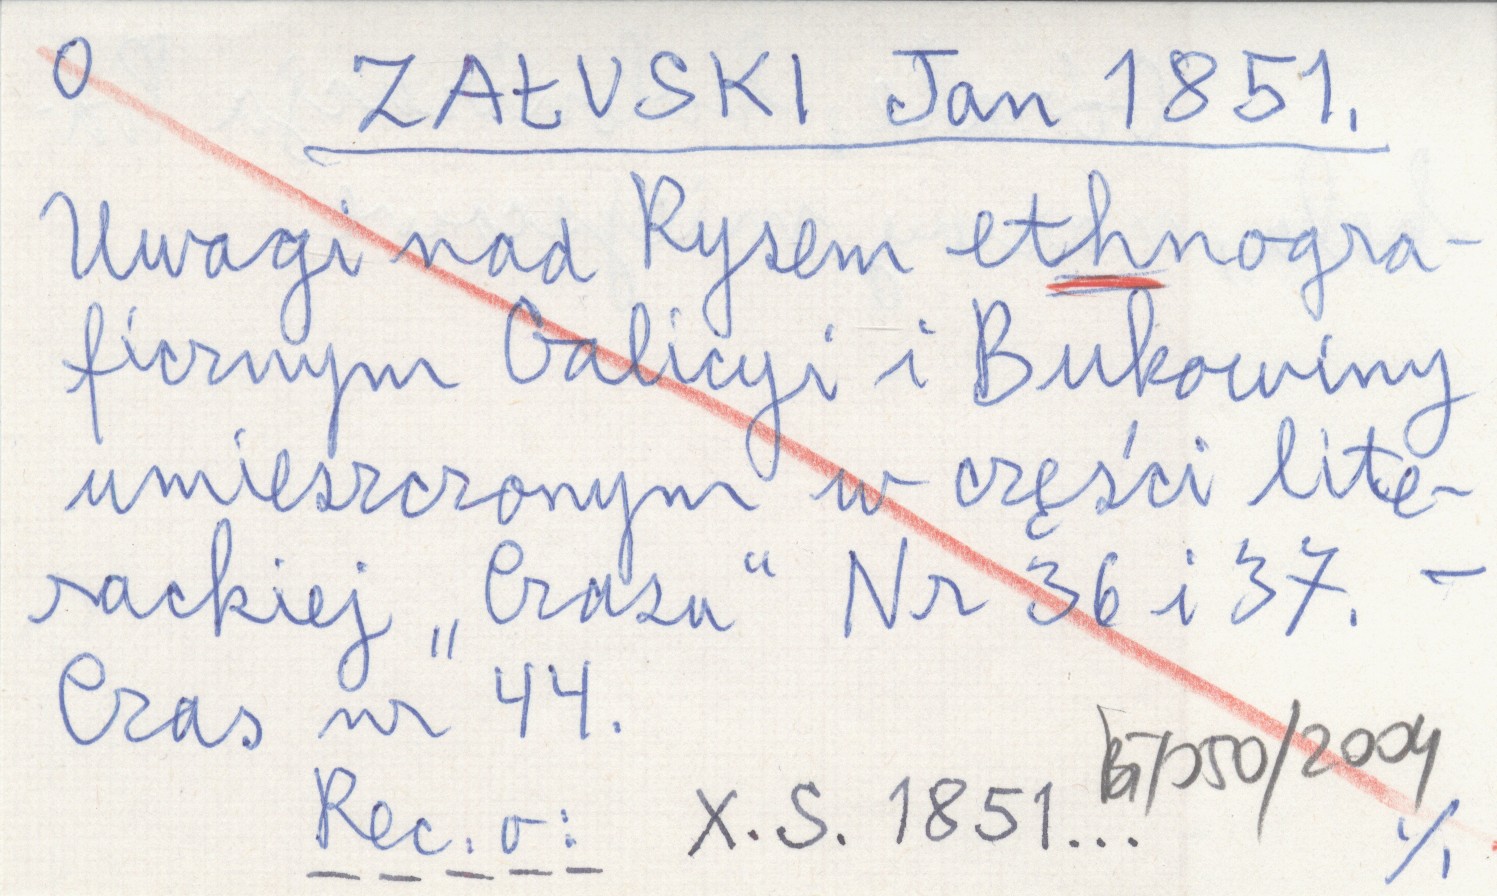 0 ZAŁUSKI Jan 1851.
Uwagi nad Rysem ethnogra-
ficznym Galicyi i Bukowiny
umieszczonym w części lite-
rackiej „Czasu“ Nr 36 i 37. –
Czas nr 44.
Rec. o: X.S. 1851...
/2004